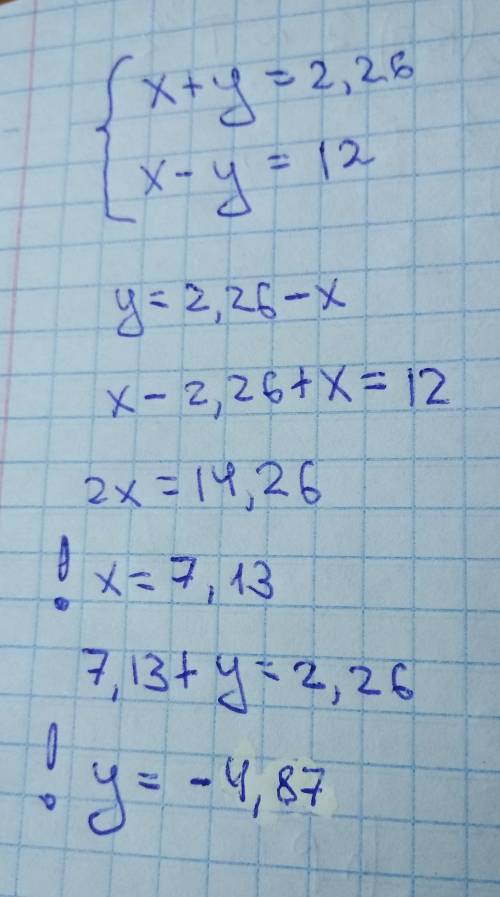 x+y=2,26
x-y=12
y=2,26-x
x-2,26+x=12
2x=14,26
! x=7,13
7,13+y=2,26
! y=-4,87